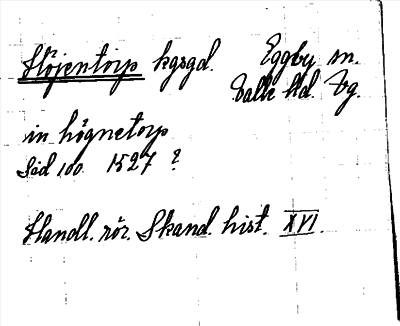 Höjentorp kgsgd. Eggby sn.
Valle hd. Vg.
in högnetorp
Sid 100 1527 ?
Handl. rör. Skand. hist. XVI.